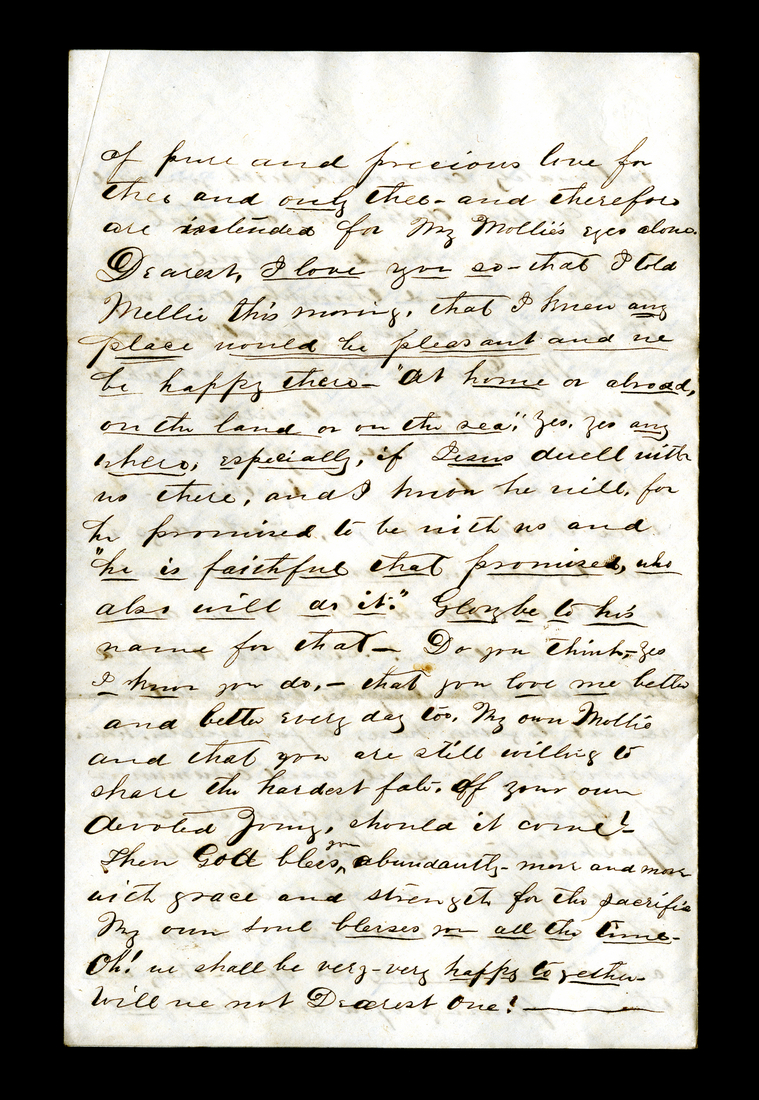 of pure and precious love for
thee and only thee- and therefore
are intended for My Mollie's eyes alone.
Dearest, I love you so- that I told
Mellie this morning, that I knew any
place would be pleasant and we
be happy there- "At home or abroad,
on the land or on the sea", Yes, yes any
where, especially, if Jesus dwell with
us there, and I know he will, for
he promised to be with us and
"he is faithful that promised, who
also will do it." Glory be to his
name for that- Do you think,- yes
I know you do,- that you love me better
and better every day too, My own Mollie
and that you are still willing to
share the hardest fate, of your own
devoted Jimmy, should it come!-
Then God bless you abundantly- more and more
with grace and strength for the sacrifice
My own soul blesses you all the time-
Oh! we shall be very-very happy together-
Will we not Dearest One!-